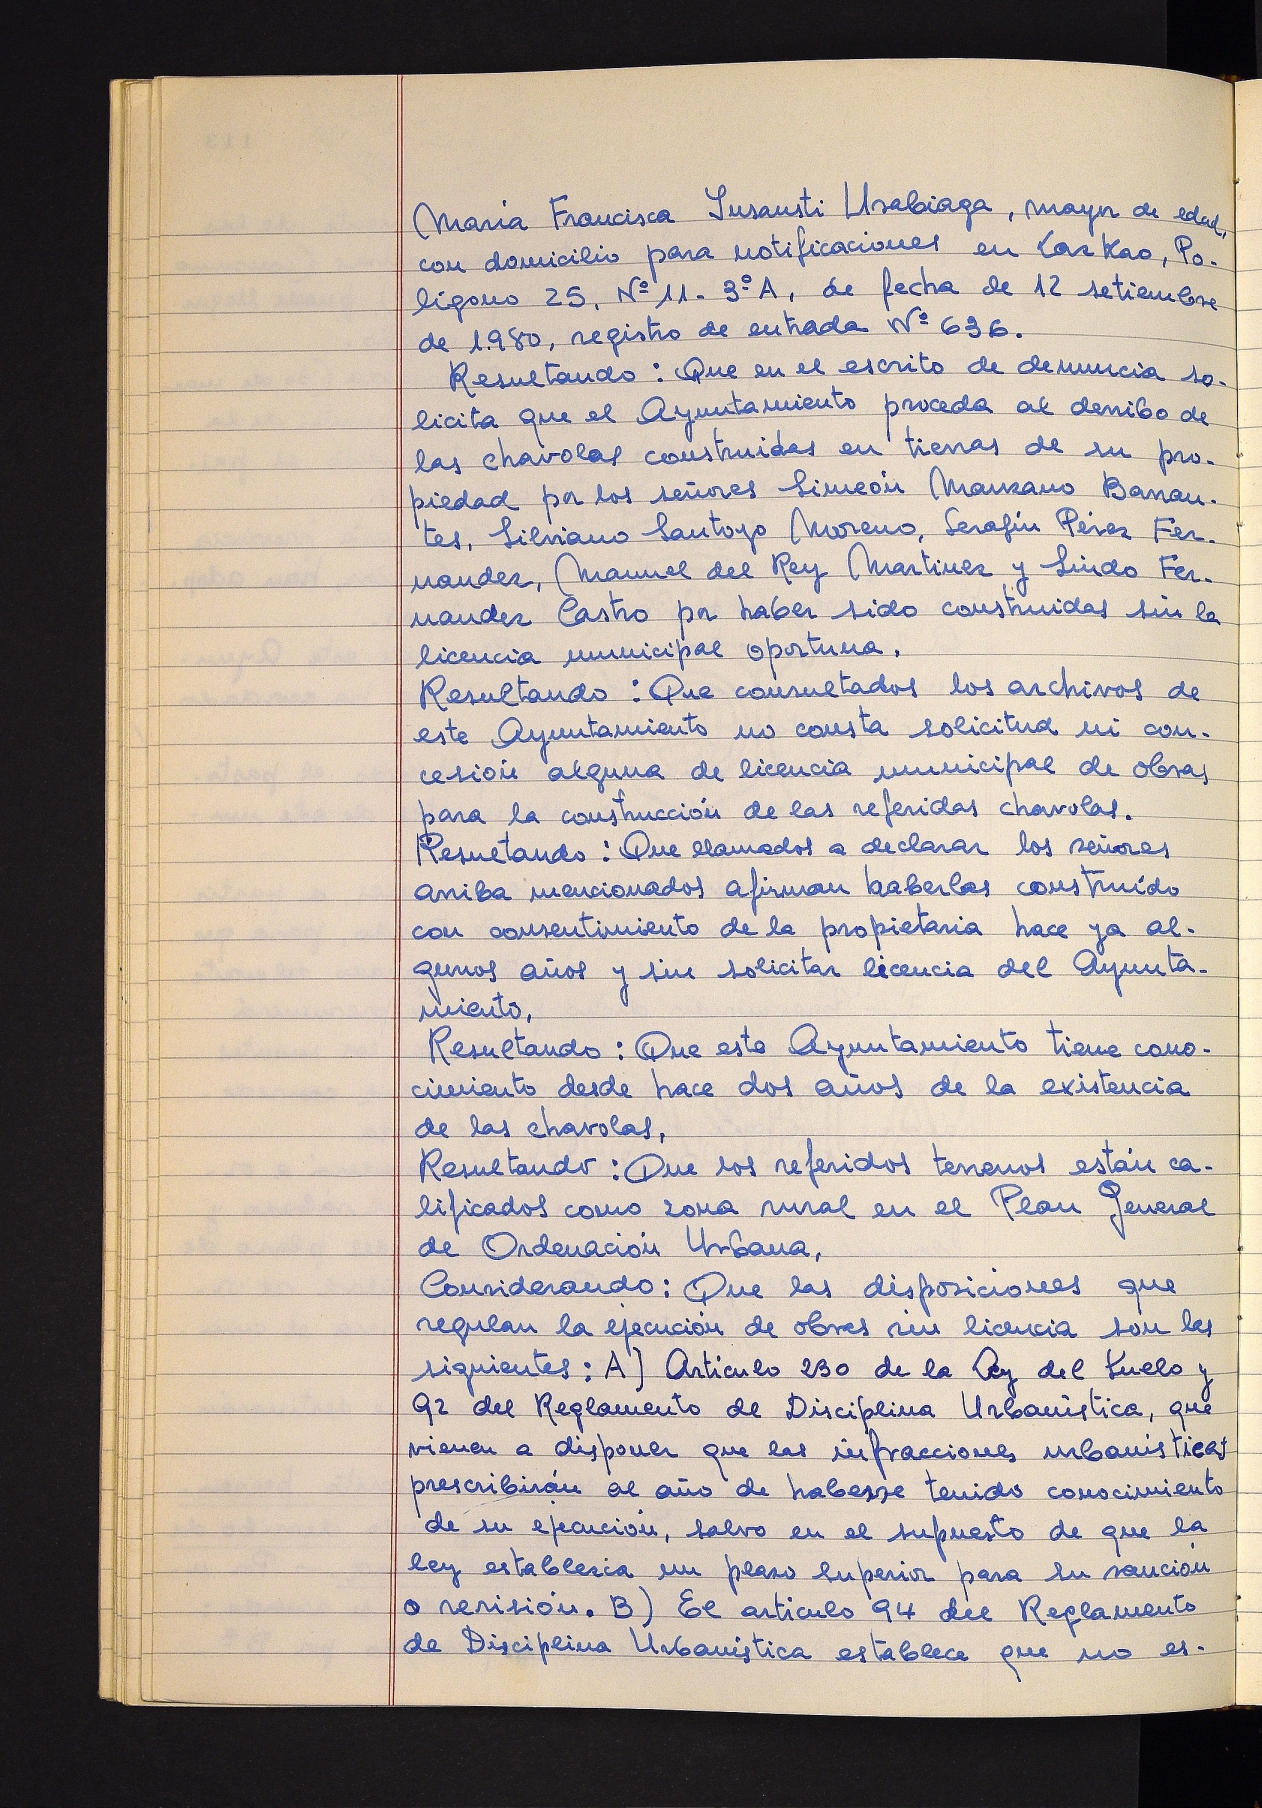 María Francisca Insausti Usabiaga, mayor de edad,
con domicilio para notificaciones en Lazkao, Po-
lígono 25, Nº 11- 3º A, de fecha de 12 setiembre
de 1.980, registro de entrada Nº 636.
Resultando: Que en el escrito de denuncia so-
licita que el Ayuntamiento proceda al derribo de
las chavolas construidas en tierras de su pro-
piedad por los señores Simeón Manzano Barran-
tes, Silviano Santoyo Moreno, Serafín Pérez Fer-
nandez, Manuel del Rey Martinez y Sindo Fer-
nandez Castro por haber sido construidas sin la
licencia municipal oportuna.
Resultando: Que consultados los archivos de
este Ayuntamiento no consta solicitud ni con-
cesión alguna de licencia municipal de obras
para la construcción de las referidas chavolas.
Resultando: Que llamados a declarar los señores
arriba mencionados afirman haberlas construído
con consentimiento de la propietaria hace ya al-
gunos años y sin solicitar licencia del Ayunta-
miento,
Resultando: Que este Ayuntamiento tiene cono-
cimiento desde hace dos años de la existencia
de las chavolas,
Resultando: Que los referidos terrenos están ca-
lificados como zona rural en el Plan General
de Ordenación Urbana,
Considerando: Que las disposiciones que
regulan la ejecución de obras sin licencia son las
siguientes: A) Articulo 230 de la Ley del Suelo y
92 del Reglamento de Disciplina Urbanística, que
vienen a disponer que las infracciones urbanísticas
prescribirán al año de haberse tenido conocimiento
de su ejecución, salvo en el supuesto de que la
ley establezca un plazo superior para su sanción
o revisión. B) El articulo 94 del Reglamento
de Disciplina Urbanística establece que no es-